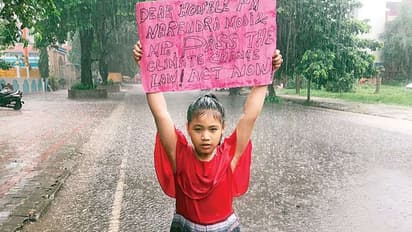 DEAR HON'BLE PM
NARENDRA MODI &
MP. PASS THE
CLIMATE CHANGE
LAW! ACT NOW!